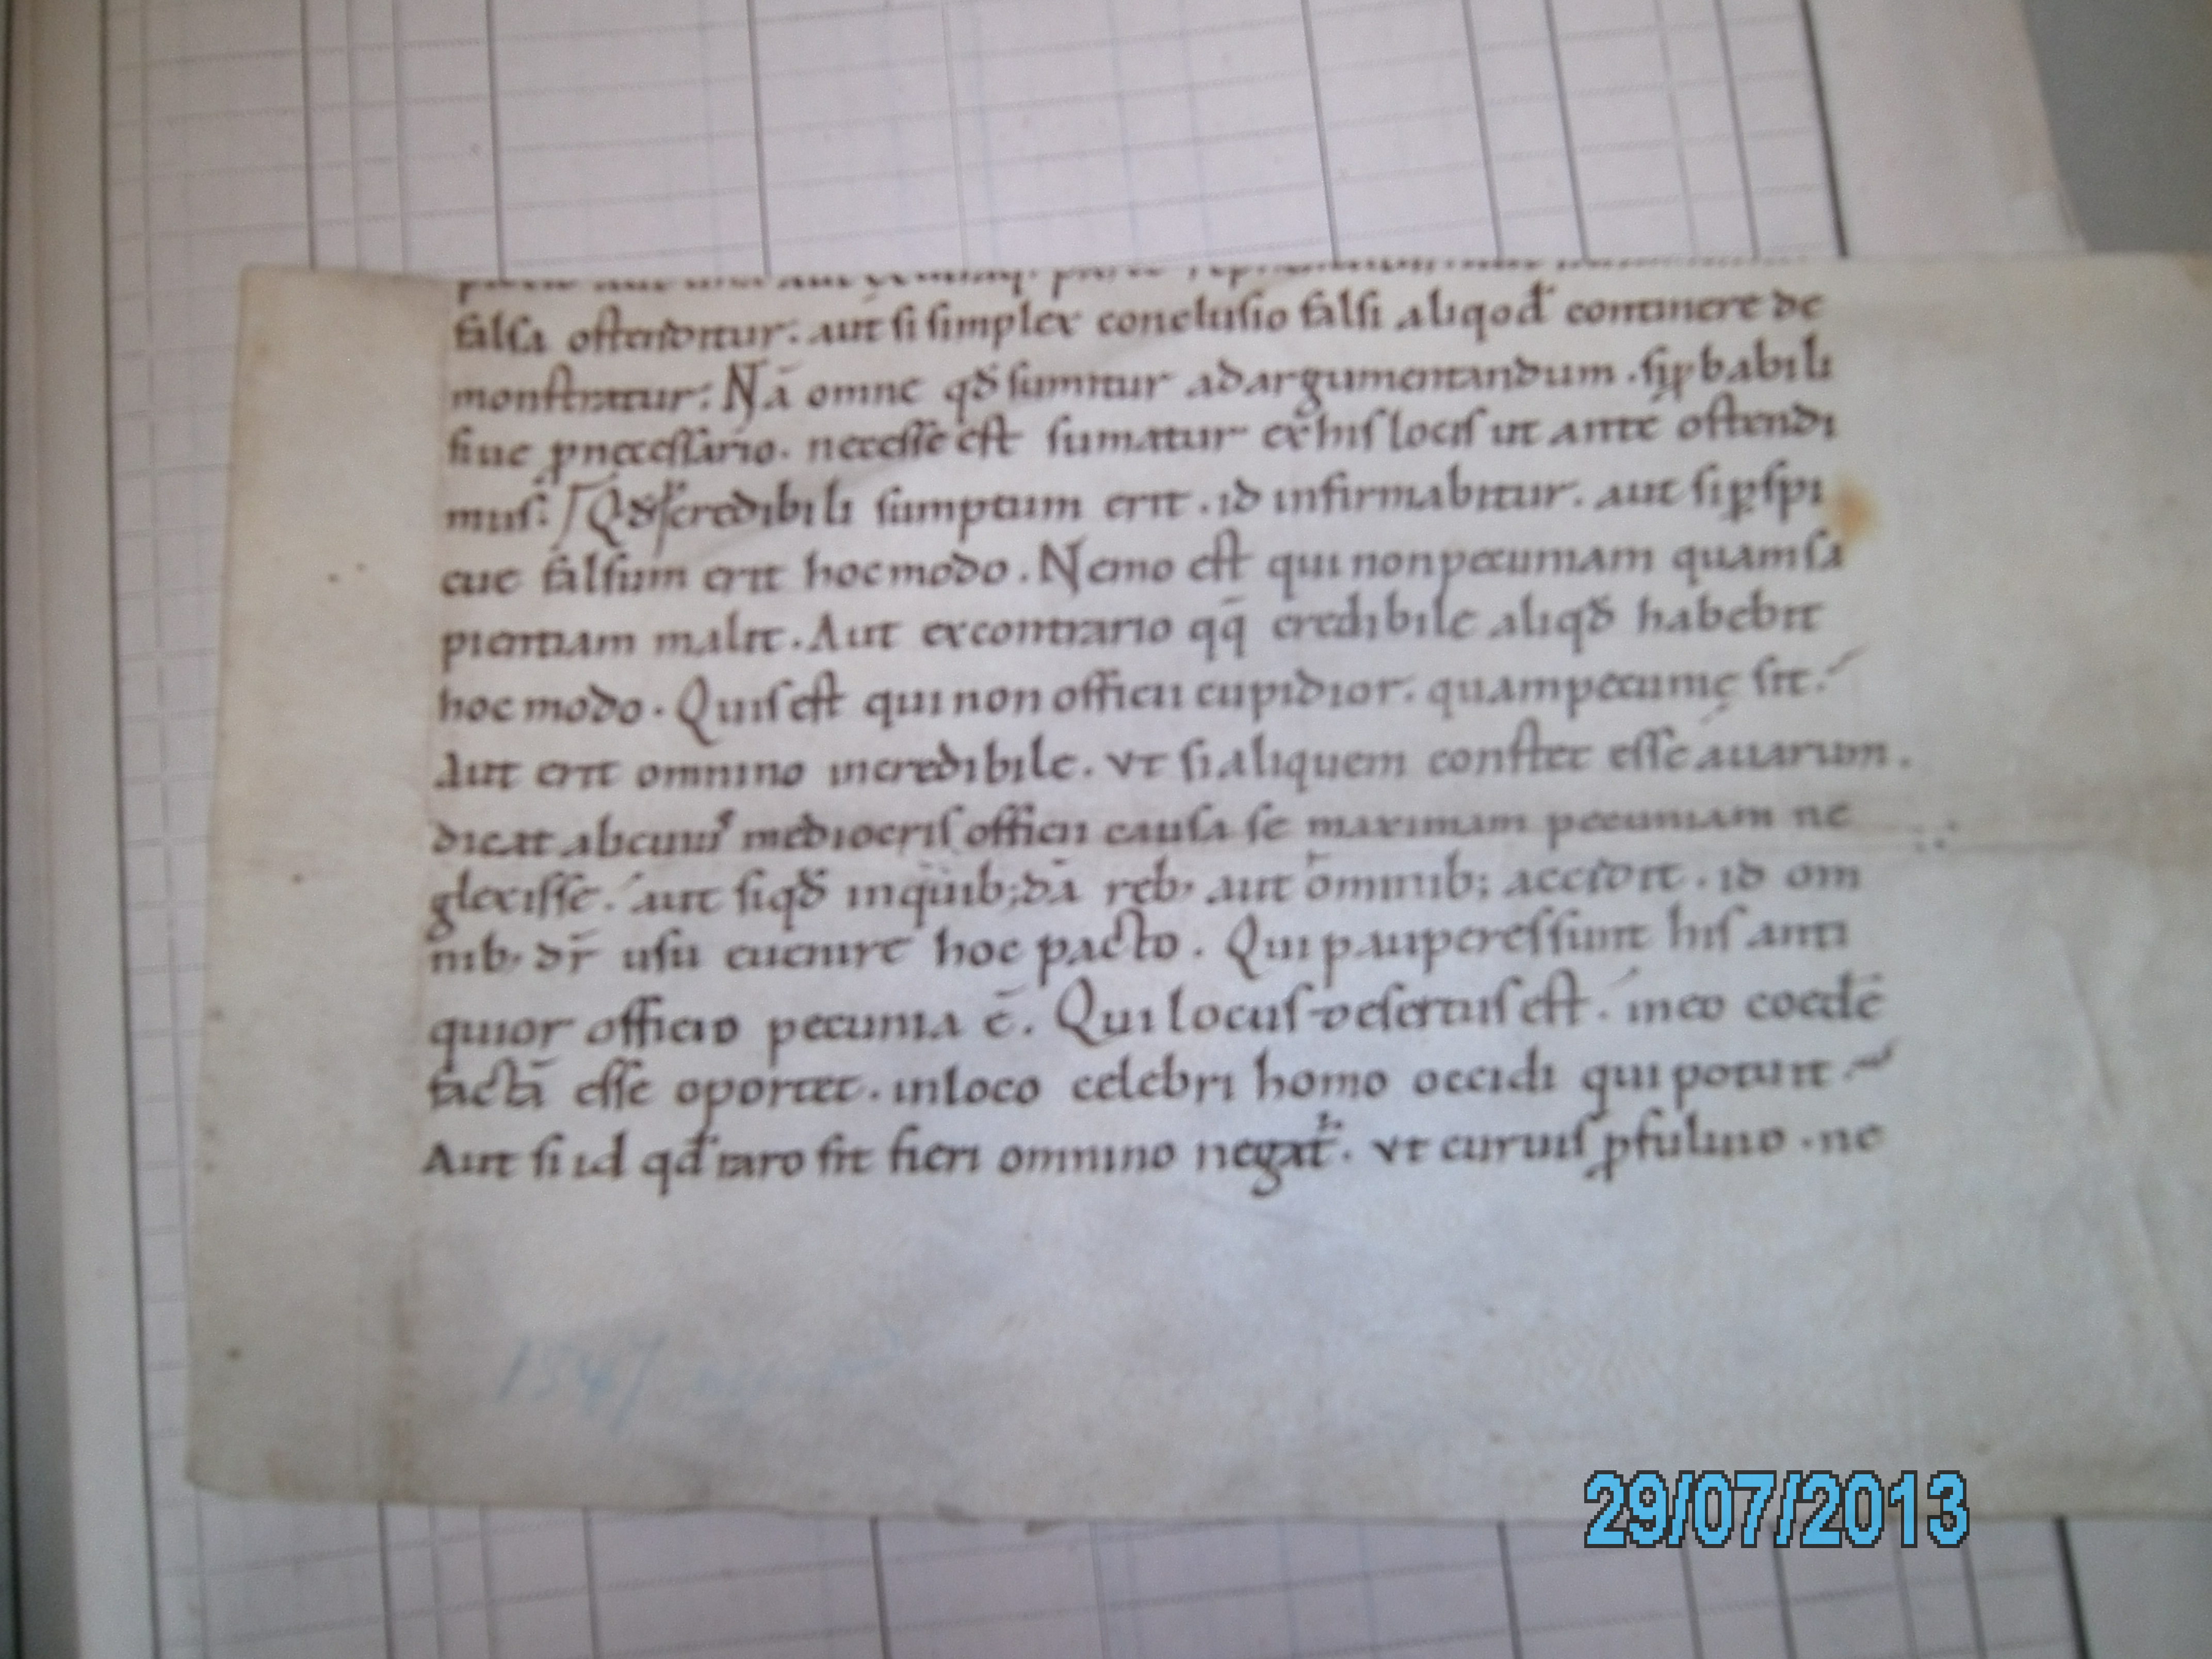 falsa ostenditur. aut si simplex conclusio falsi aliqod continere de
monstratur: Nā omne qđ sumitur ad argumentandum. si ꝓbabili
siue ꝓ necessario. necesse est sumatur ex his locis ut ante ostendi
mus. Qđ credibili sumptum erit. id infirmabitur. aut si ꝑspi
cue falsum erit hoc modo. Nemo est qui non pecuniam quam sa
pientiam malit. Aut ex contrario qq̄ credibile aliqđ habebit
hoc modo. Quis est qui non officii cupidior. quam pecunię sit.
Aut erit omnino incredibile. vt si aliquem constet esse auarum.
dicat alicuiꝰ mediocris officii causa se maximam pecuniam ne
glexisse. aut siqđ in quib; dā reb, aut omnib; accidit. id om
nib, dr̄ usu euenire hoc pacto. Qui pauperes sunt his anti
quior officio pecunia ē. Qui locus desertus est. in eo coedē
factā esse oportet. in loco celebri homo occidi qui potuit
Aut si id qđ raro fit fieri omnino negat̄. vt curuis ꝓ fuluio. ne
1547
29/07/2013